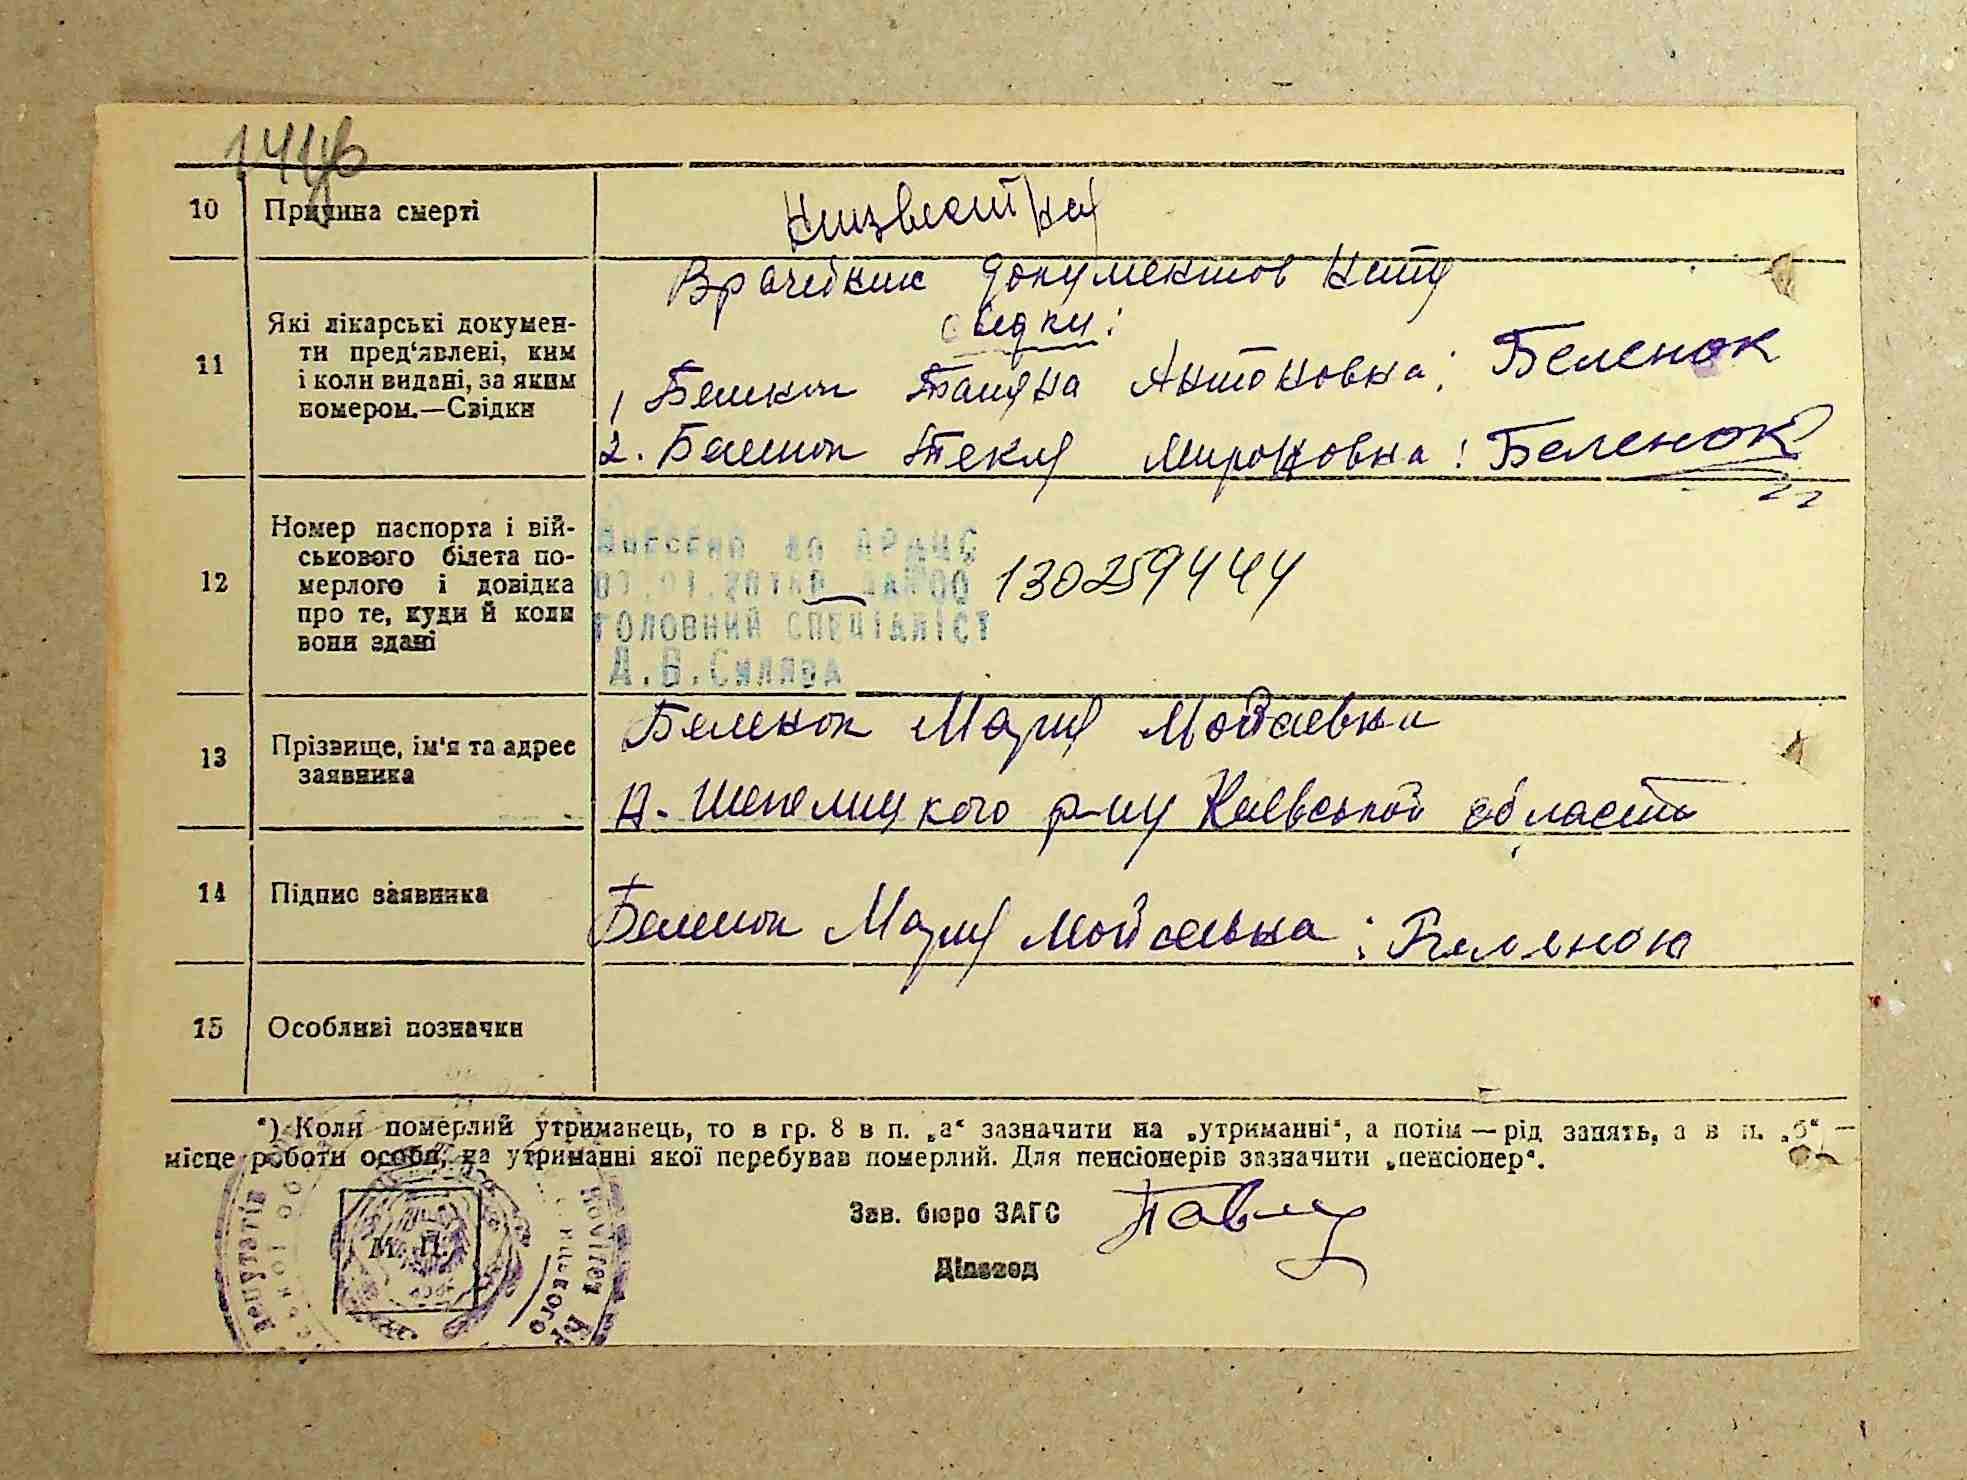 10 Причина смерті
Неизвестна
11 Які лікарські докумен-
ти пред'явлені, ким
і коли видані, за яким
номером.—Свідки
Врачейних документов нету
свидки:
1 Беленок Антоновна: Беленок
2. Беленок Текля Мироновна: Беленок
12 Номер паспорта і вій-
ськового білета по-
мерлого і довідка
про те, куди й коли
вони здані
Внесено до ДРАЦС
головний спеціаліст
130259444
13 Прізвище, ім'я та адрес
заявника
Беленок Мария Мойсеевна
Н-Шепелицкого р-ну Киевской области
14 Підпис заявника
Беленок Мария Мойсеевна: Беленок
15 Особливі позначки
*) Коли померлий утриманець, то в гр. 8 в п. „а“ зазначити на „утриманні“, а потім — рід занять, а в п. „б“ —
місце роботи особи, на утриманні якої перебував померлий. Для пенсіонерів зазначити „пенсіонер“.
М. П.
депутатів
Зав. бюро ЗАГС
Діловод